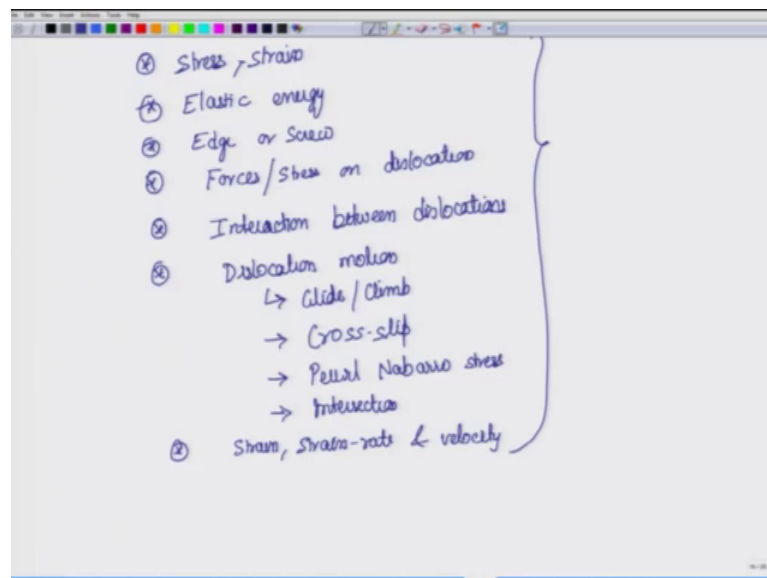 Stress, Strain
Elastic energy
Edge or Screw
Forces/Stress on dislocation
Interaction between dislocations
Dislocation motion
↳ Glide/Climb
→ Cross-slip
→ Peierl Nabarro stress
→ Intersection
Strain, Strain-rate & velocity